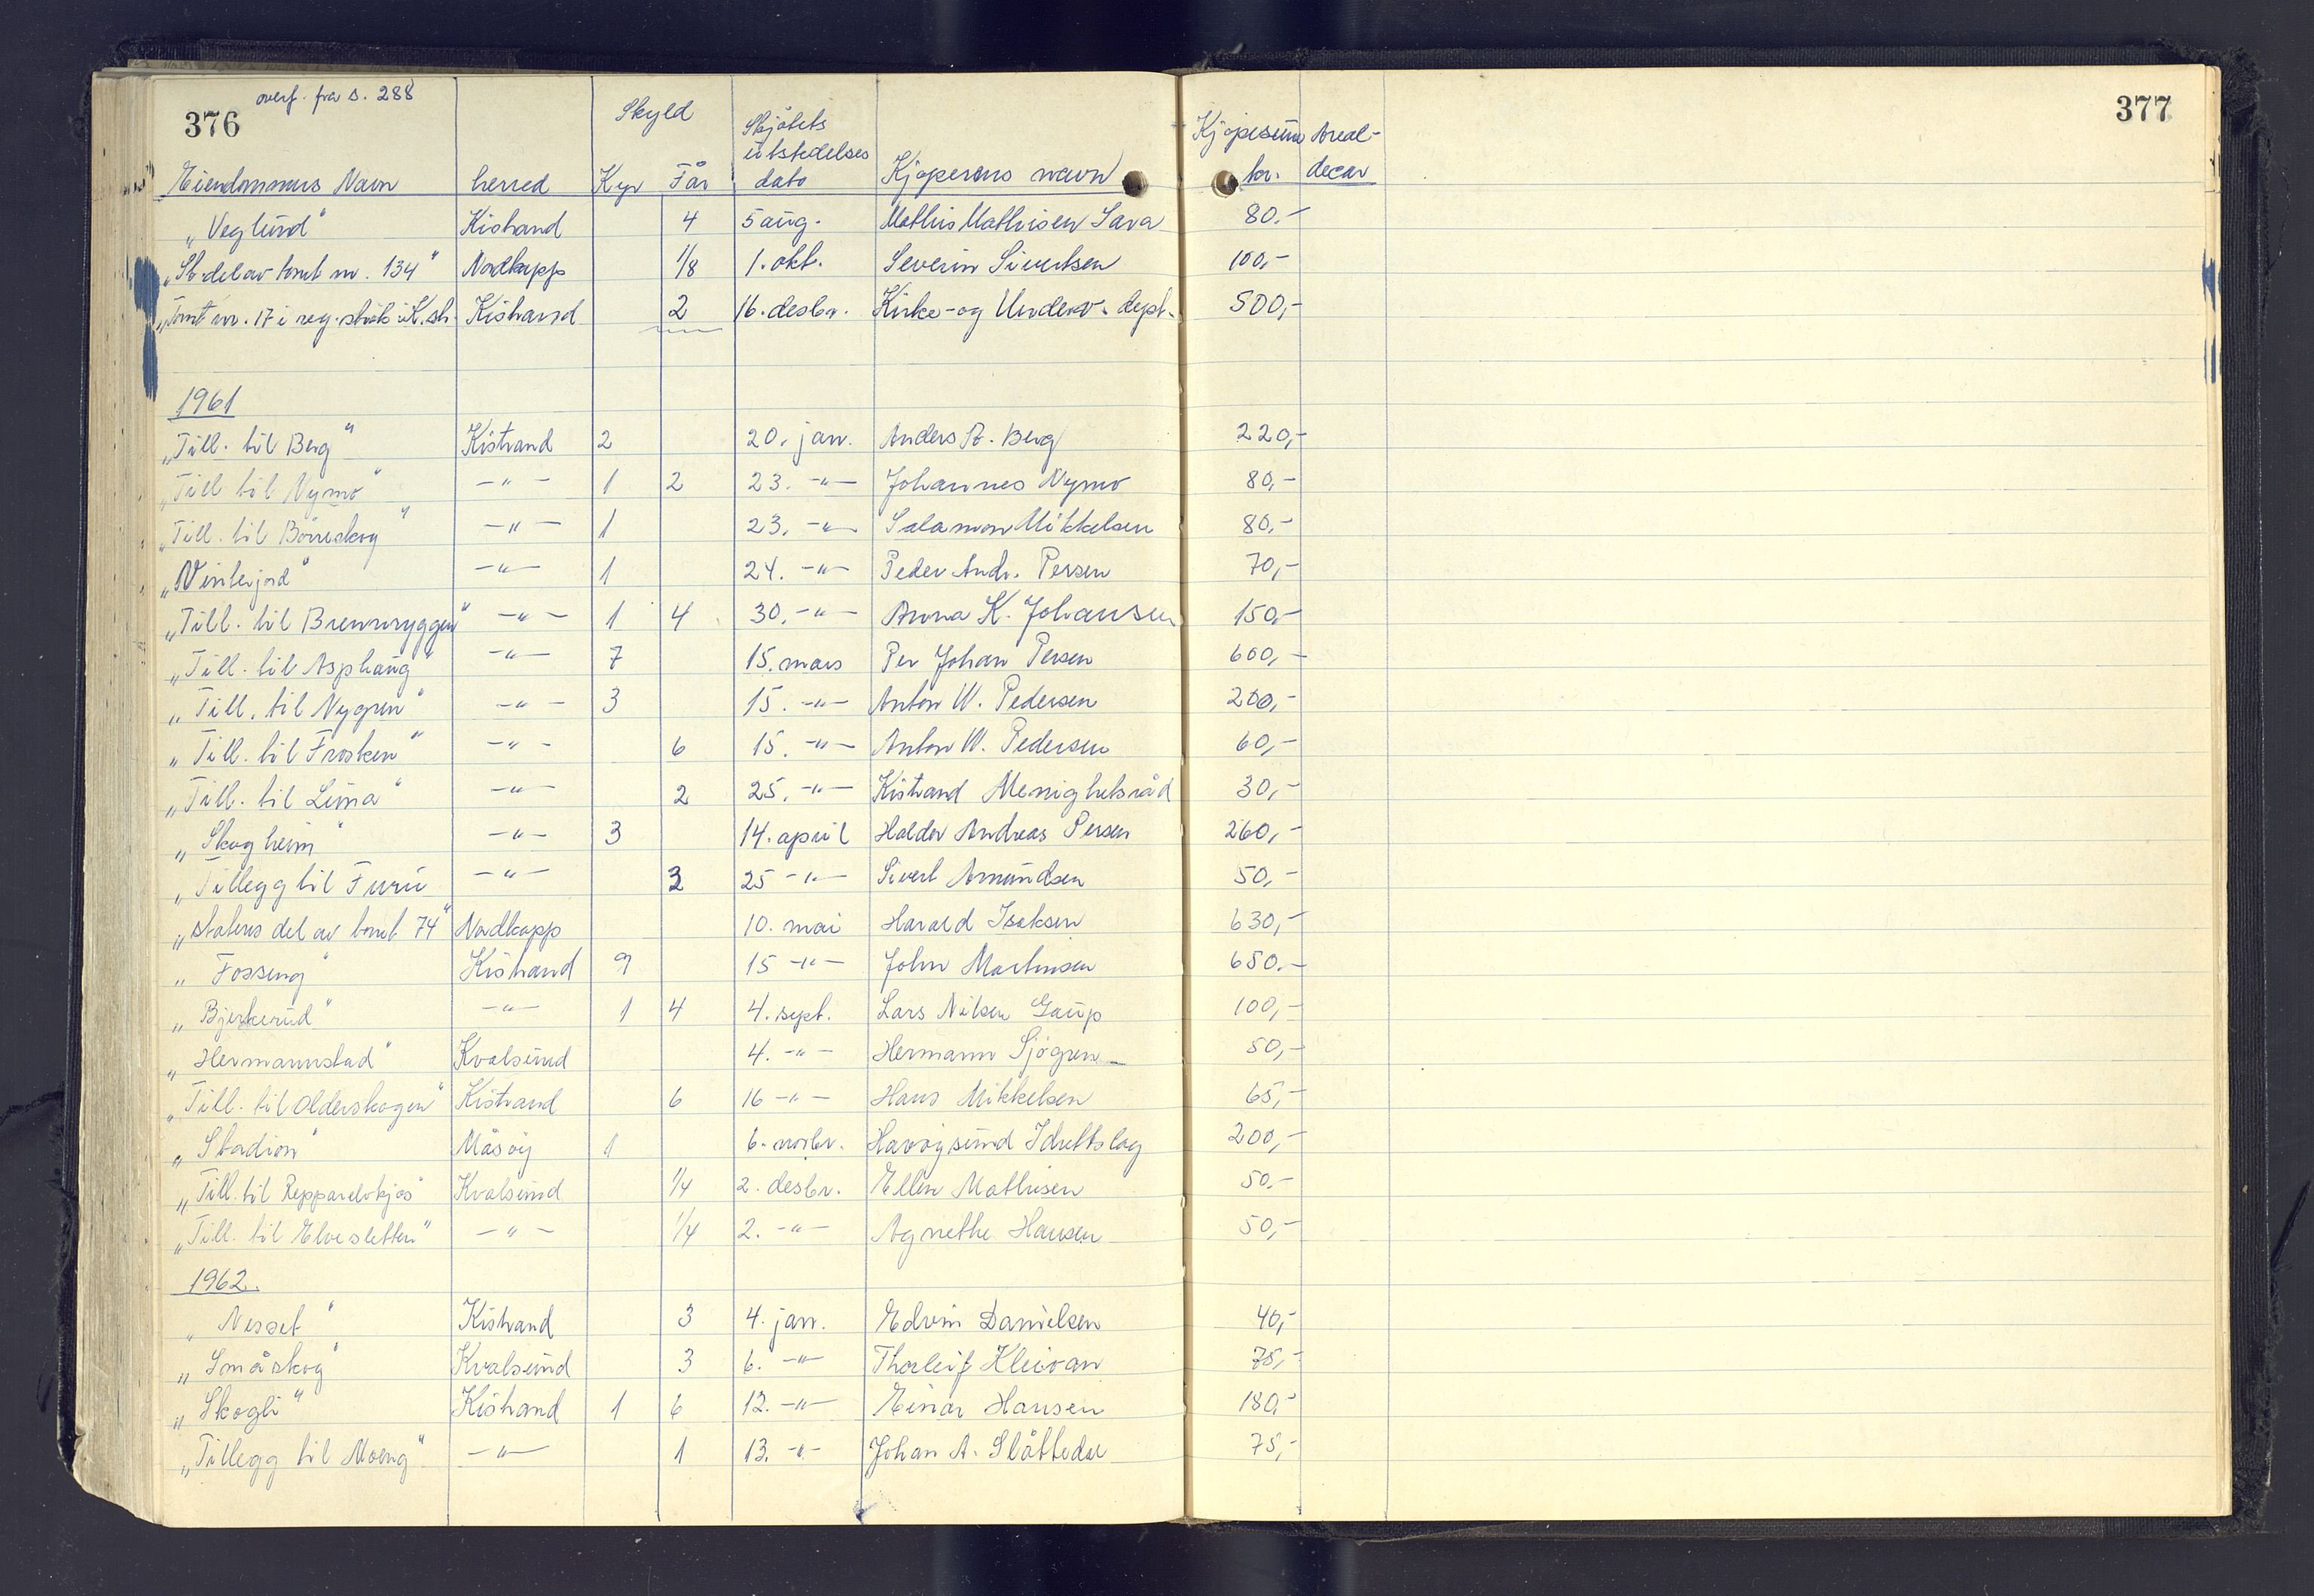 overf. fra s. 288
376
377
Skyld
Eiendommens Navn herred Kyr Får Skjøtets utstedelses dato Kjøperens navn Kjøpesum kr. Areal- decar
"Veglund" Kistrand 4 5 aug. Mathis Mathisen Sara 80.-
"St. del av tomt nr. 134" Nordkapp 1/8 1. okt. Severin Sivertsen 100,-
"Tomt nr. 17 i reg. strøk i K.str. Kistrand 2 16. desbr. Kirke- og Underv. dept. 500,-
1961
"Till. til Berg" Kistrand 2 20. jan. Anders P. Berg 220,-
"Till til Nymo" -"- 1 2 23. -"- Johannes Nymo 80,-
"Till. til Börreskog" -"- 1 23. -"- Salamon Mikkelsen 80,-
"Vinterjord" -"- 1 24. -"- Peder Andr. Persen 70,-
"Till. til Brennryggen" -"- 1 4 30. -"- Anna K. Johansen 150,-
"Till. til Asphaug" -"- 7 15. mars Per Johan Persen 600,-
"Till. til Nygren" -"- 3 15. -"- Anton W. Pedersen 200,-
"Till. til Frosken" -"- 6 15. -"- Anton W. Pedersen 60,-
"Till. til Leina" -"- 2 25. -"- Kistrand Menighetsråd 30,-
"Skogheim" -"- 3 14. april Haldor Andreas Persen 260,-
"Tillegg til Furu -"- 3 25 -"- Sivert Amundsen 50,-
"Statens del av tomt 74" Nordkapp 10. mai Harald Isaksen 630,-
"Fosseng" Kistrand 9 15 -"- John Martinsen 650.-
"Bjerkerud" -"- 1 4 4. sept. Lars Nilsen Gaup 100,-
"Hermannstad" Kvalsund 4. -"- Hermann Sjögren 50,-
"Till. til Olderskogen" Kistrand 6 16 -"- Hans Mikkelsen 65,-
"Stadion" Måsøy 1 6. novbr. Havøysund Idrettslag 200,-
"Till. til Repparelvkjos" Kvalsund 1/4 2. desbr. Ellen Mathisen 50.-
"Till. til Elvesletten" -"- 1/4 2. -"- Agnethe Hansen 50,-
1962.
"Nesset" Kistrand 3 4. jan. Edvin Danielsen 40,-
"Småskog" Kvalsund 3 6. -"- Thorleif Kleivan 75,-
"Skogli" Kistrand 1 6 12. -"- Einar Hansen 180,-
"Tillegg til Moeng" -"- 1 13. -"- Johan A. Slåttedal 75,-